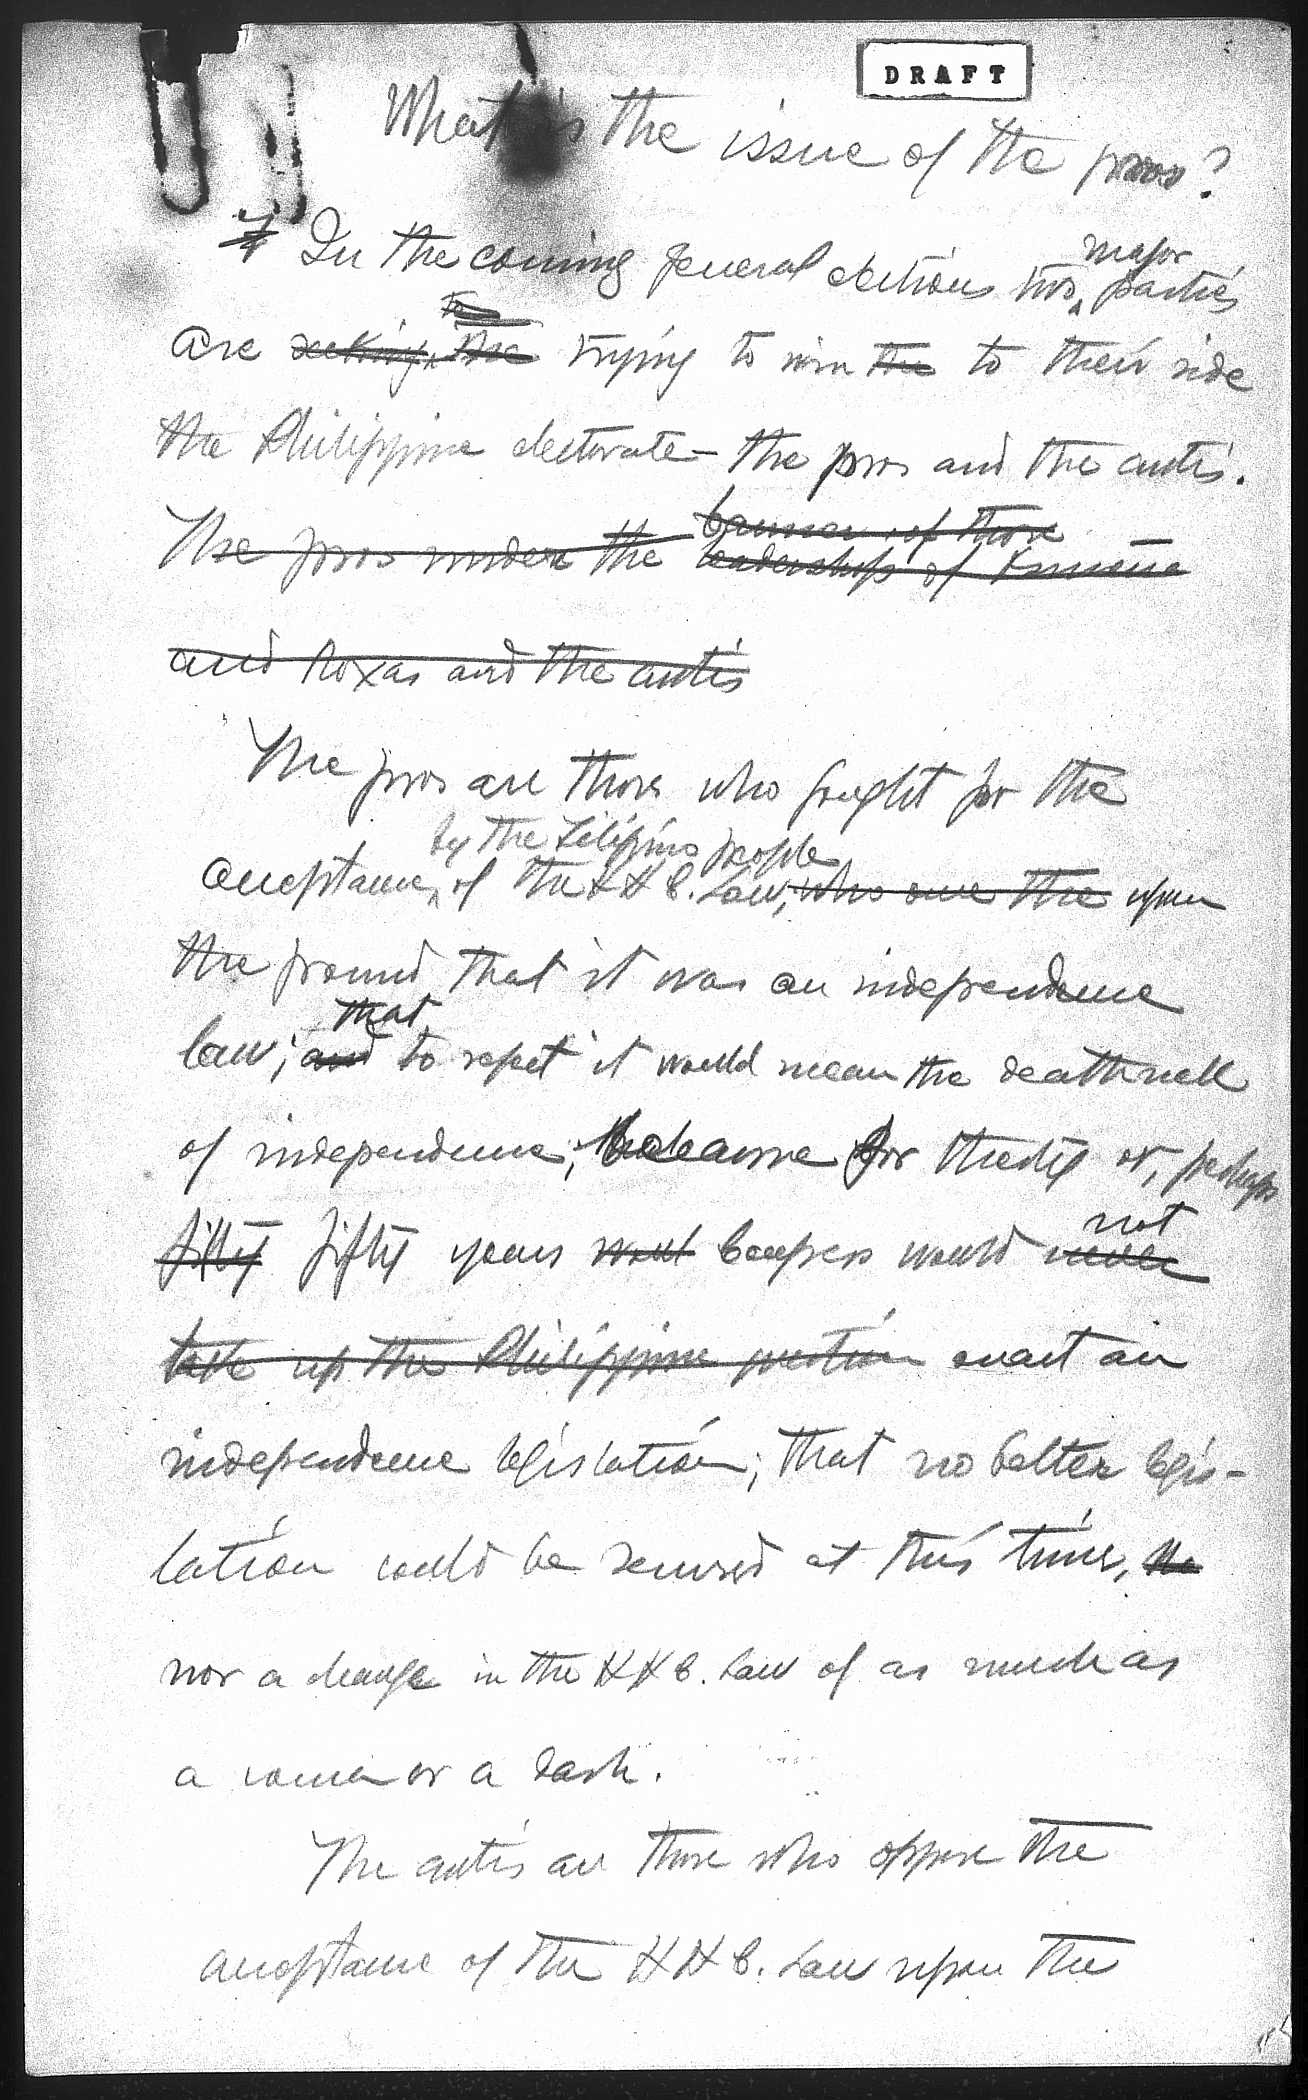 DRAFT
What is the issue of the pros?
In the coming general elections two major parties
are seeking the trying to win the to their side
the Philippine electorate – the pros and the antis.
The pros under the banner of those leadership of
and Roxas and the antis
The pros are those who fought for the
by the Filipino people
acceptance of the H H C. Law, who were the upon
the ground that it was an independence
that
law; and to reject it would mean the deathnell
of independence; because for thirty or, perhaps
not
fifty fifty years would Congress would never
take up the Philippine question enact an
independence legislation; that no better legis-
lation could be secured at this time,
nor a change in the H H C. Law of as much as
a comma or a dash.
The antis are those who oppose the
acceptance of the H H C. Law upon the